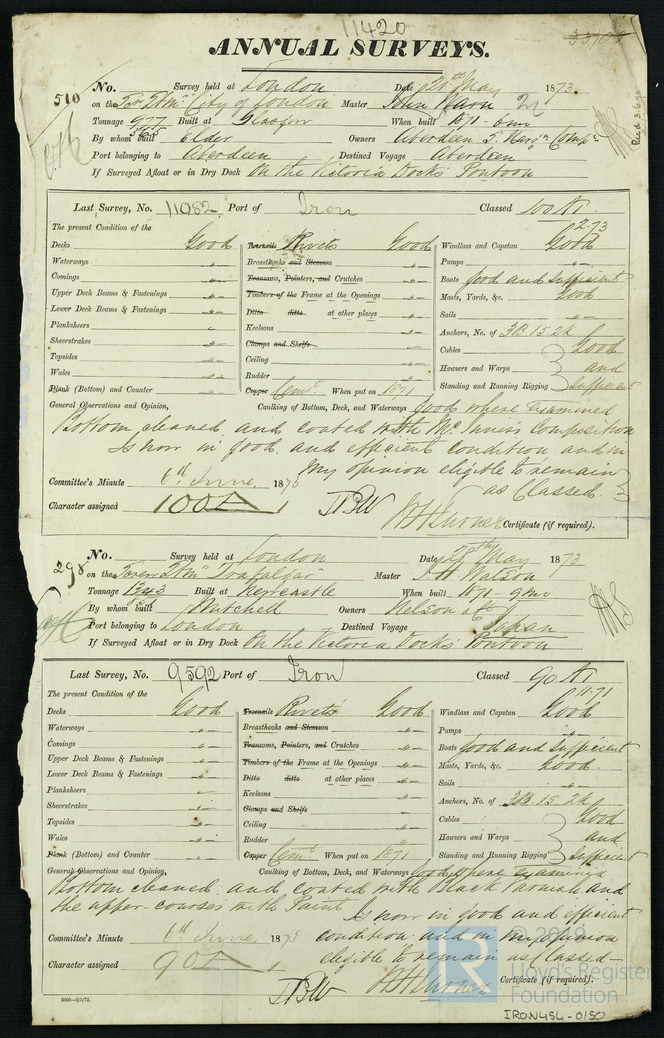 11420
ANNUAL SURVEYS.
510
No. Survey held at London Date 21st May 1873.
on the Scr Stmr "City of London" Master John
Tonnage 977 Built at Glasgow When built 1871 - 6 mo
By whom built Elder Owners Aberdeen S. Nav'n Comp'y
Port belonging to Aberdeen Destined Voyage Aberdeen
If Surveyed Afloat or in Dry Dock On the Victoria Docks' Pontoon
Last Survey, No. 11082 Port of Iron Classed 100 A1
2.73
The present Condition of the
Decks Good Treenails Rivets Good Windlass and Capstan Good
Waterways Breasthooks and Stemson Pumps
Comings Transoms, Pointers, and Crutches Boats Good and Sufficient
Upper Deck Beams & Fastenings Timbers of the Frame at the Openings Masts, Yards, &c. Good
Lower Deck Beams & Fastenings Ditto ditto. at other places Sails
Planksheers Keelsons Anchors, No. of 3B 1S 2K
Sheerstrakes Clamps and Shelfs Cables Good
Topsides Ceiling Hawsers and Warps and
Wales Rudder Standing and Running Rigging Sufficient
Plank (Bottom) and Counter Copper Cem't When put on 1871
General Observations and Opinion, Caulking of Bottom, Deck, and Waterways Good where examined
Bottom cleaned and coated with McInnis Composition
Is now in good and efficient condition and in
my opinion eligible to remain
as Classed.
Committee's Minute 6th June, 1873
Character assigned 100A1
Certificate (if required).
298
No. Survey held at London Date 28th May 1873
on the Screw Stmr "Trafalgar" Master Watson
Tonnage 1343 Built at Newcastle When built 1871 - 9 mo
By whom built Mitchell Owners Nelson
Port belonging to London Destined Voyage Japan
If Surveyed Afloat or in Dry Dock On the Victoria Docks' Pontoon
Last Survey, No. 9592 Port of Iron Classed 90 A1
11.71
The present Condition of the
Decks Good Treenails Rivets Good Windlass and Capstan Good
Waterways Breasthooks and Stemson Pumps
Comings Transoms, Pointers, and Crutches Boats Good and Sufficient
Upper Deck Beams & Fastenings Timbers of the Frame at the Openings Masts, Yards, &c. Good.
Lower Deck Beams & Fastenings Ditto ditto. at other places Sails
Planksheers Keelsons Anchors, No. of 3B 1S 2K
Sheerstrakes Clamps and Shelfs Cables Good
Topsides Ceiling Hawsers and Warps and
Wales Rudder Standing and Running Rigging Sufficient
Plank (Bottom) and Counter Copper Cem't When put on 1871
General Observations and Opinion, Caulking of Bottom, Deck, and Waterways Good where examined
Bottom cleaned and coated with Black Varnish and
the upper courses with Paint
Is now in good and efficient
Committee's Minute 6th June, 1873 condition and in my opinion
eligible to remain as Classed
Character assigned 90A1
Certificate (if required).
5000-6/3/72.
R © 2019
Lloyd's Register
Foundation
IRON454-0150